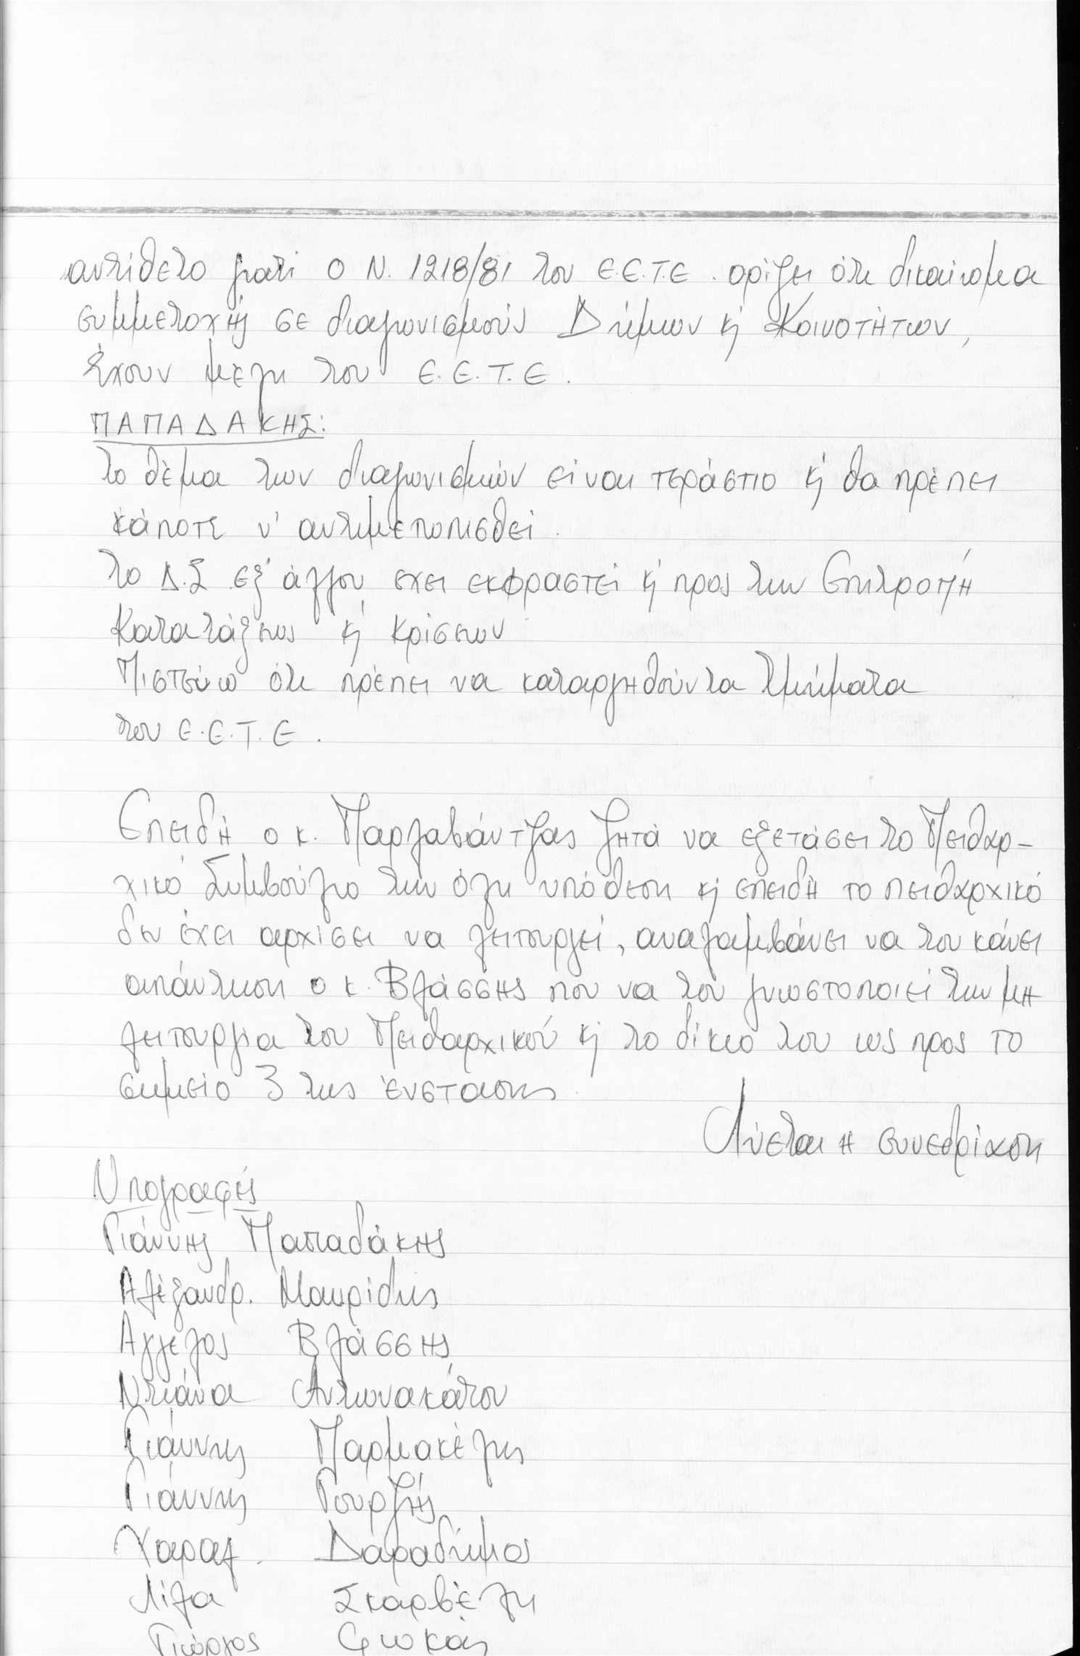 αντίθετο γιατί ο Ν. 1218/81 του Ε.Ε.Τ.Ε. ορίζει ότι δικαίωμα
συμμετοχής σε διαγωνισμούς Δήμων κ Κοινοτήτων,
έχουν μέλη του Ε.Ε.Τ.Ε.
ΠΑΠΑΔΑΚΗΣ:
Το θέμα των διαγωνισμών είναι τεράστιο κ θα πρέπει
κάποτε ν' αντιμετωπισθεί.
Το Δ.Σ εξ' άλλου έχει εκφραστεί κ προς την Επιτροπή
Κατατάξεως κ Κρίσεων
Πιστεύω ότι πρέπει να καταργηθούν τα Τμήματα
του Ε.Ε.Τ.Ε.
Επειδή ο κ. Παρλαβάντζας ζητά να εξετάσει το Πειθαρ-
χικό Συμβούλιο την όλη υπόθεση κ επειδή το πειθαρχικό
δεν έχει αρχίσει να λειτουργεί, αναλαμβάνει να του κάνει
απάντηση ο κ. Βλάσσης που να του γνωστοποιεί την μη
λειτουργία του Πειθαρχικού κ το δίκιο του ως προς το
σημείο 3 της ένστασης.
Λύεται η συνεδρίαση
Υπογραφές
Γιάννης Παπαδάκης
Αλέξανδρ. Μαυρίδης
Αγγελος Βλάσσης
Ντιάνα Αντωνακάτου
Γιάννης Παρμακέλης
Γιάννης Γουρζής
Χαραλ. Δαραδήμος
Λίζα Σκαρβέλη
Γιώργος Φωκάς